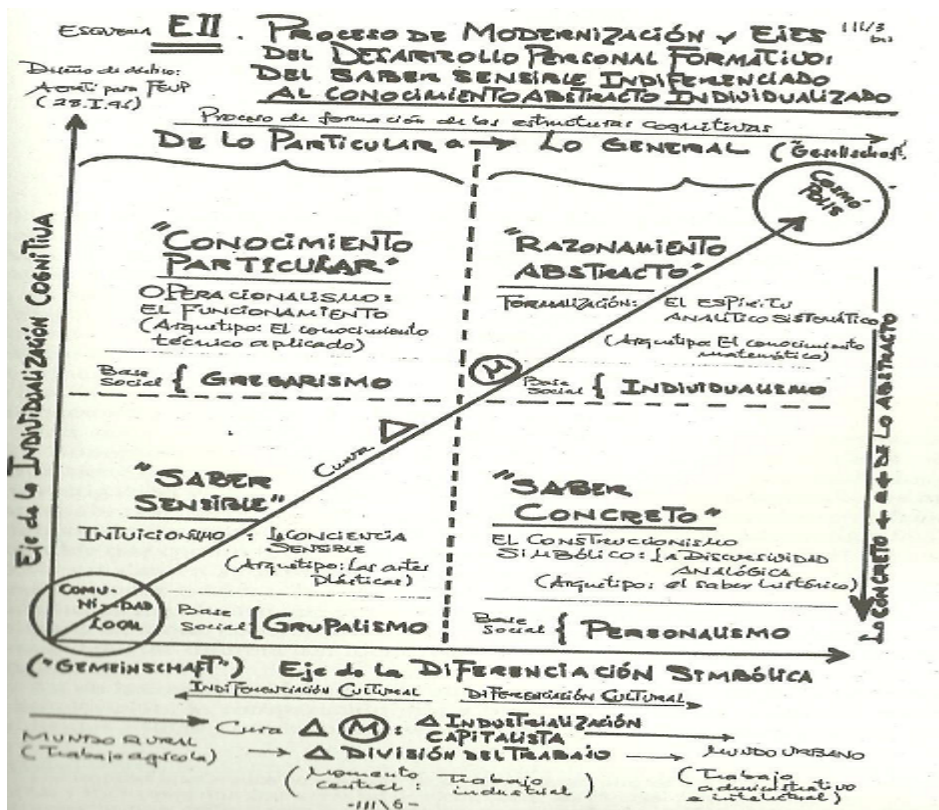 ESQUEMA EII. PROCESO DE MODERNIZACIÓN Y EJES
III/3
bis
DEL DESARROLLO PERSONAL FORMATIVO:
DEL SABER SENSIBLE INDIFERENCIADO
AL CONOCIMIENTO ABSTRACTO INDIVIDUALIZADO
Diseño de
para FEUP
Proceso de formación de las estructuras cognitivas
DE LO PARTICULAR a → LO GENERAL ("Gesellschaft"
COSMÓ
POLIS
Eje de la INDIVIDUALIZACIÓN COGNITIVA
"CONOCIMIENTO
PARTICULAR"
OPERACIONALISMO:
EL FUNCIONAMIENTO
(Arquetipo: El conocimiento
técnico aplicado)
Base
Social { GREGARISMO
"RAZONAMIENTO
ABSTRACTO"
FORMALIZACIÓN: EL ESPÍRITU
ANALÍTICO SISTEMÁTICO
(Arquetipo: El conocimiento
matemático)
Base
Social { INDIVIDUALISMO
M
Curva Δ
LO CONCRETO ← a ← DE LO ABSTRACTO
"SABER
SENSIBLE"
INTUICIONISMO: LA CONCIENCIA
SENSIBLE
(Arquetipo: Las artes
plásticas)
Base
Social { GRUPALISMO
"SABER
CONCRETO"
EL CONSTRUCCIONISMO
SIMBÓLICO: LA DISCURSIVIDAD
ANALÓGICA
(Arquetipo: el saber histórico)
Base
Social { PERSONALISMO
COMU-
NIDAD
LOCAL
("GEMEINSCHAFT") Eje de la DIFERENCIACIÓN SIMBÓLICA
INDIFERENCIACIÓN CULTURAL DIFERENCIACIÓN CULTURAL
Curva Δ M: Δ INDUSTRIALIZACIÓN
CAPITALISTA
MUNDO RURAL
(Trabajo agrícola)
→ Δ DIVISIÓN DEL TRABAJO → MUNDO URBANO
(Momento central: Trabajo industrial)
(Trabajo
administrativo
e intelectual)
-III\6-